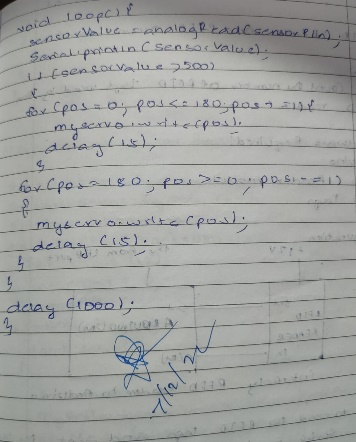 void loop() {
sensorValue = analogRead(sensorPin);
Serial.println(sensorValue);
if (sensorvalue >500)
{
for (pos = 0; pos<=180; pos+=1){
myservo.write(pos);
delay (15);
}
for(pos=180; pos>=0; pos-=1)
{
myservo.write(pos);
delay (15);
}
}
delay (1000);
}